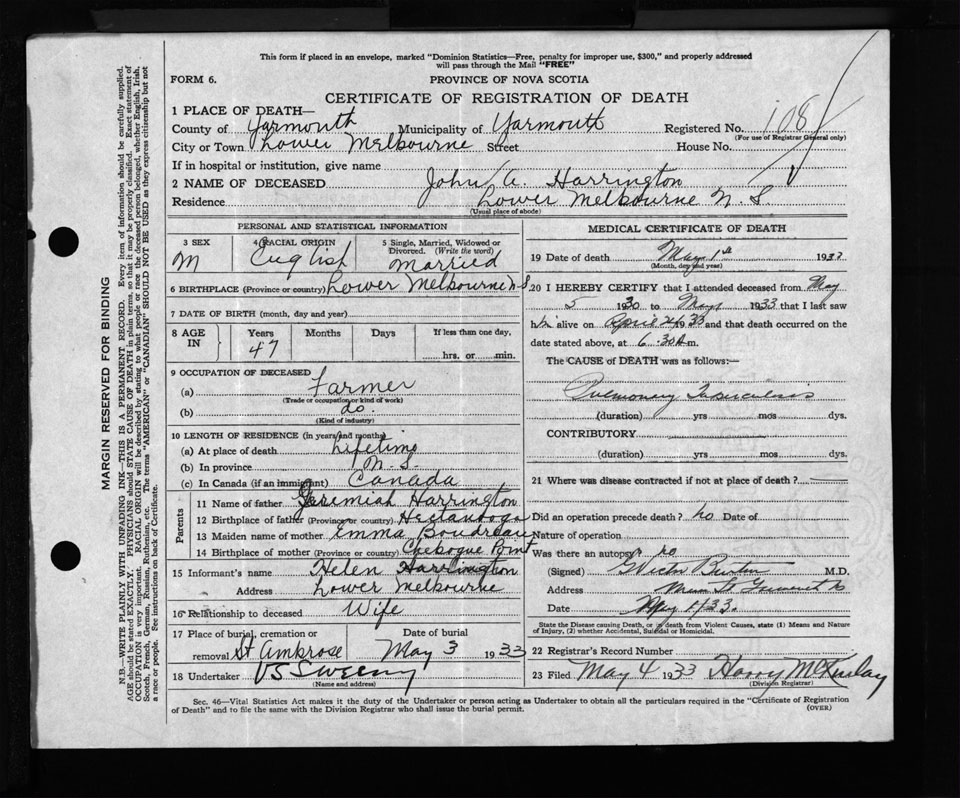 This form if placed in an envelope, marked "Dominion Statistics—Free, penalty for improper use, $300," and properly addressed
will pass through the Mail "FREE"
FORM 6.
PROVINCE OF NOVA SCOTIA
CERTIFICATE OF REGISTRATION OF DEATH
1 PLACE OF DEATH—
County of Yarmouth Municipality of Yarmouth Registered No. 108
(For use of Registrar General only)
City or Town Lower Melbourne Street House No.
If in hospital or institution, give name
2 NAME OF DECEASED John A. Harrington
Residence Lower Melbourne N. S.
(Usual place of abode)
PERSONAL AND STATISTICAL INFORMATION
3 SEX 4 RACIAL ORIGIN 5 Single, Married, Widowed or
Divorced. (Write the word)
M English Married
6 BIRTHPLACE (Province or country) Lower Melbourne N S
7 DATE OF BIRTH (month, day and year)
8 AGE IN Years Months Days If less than one day,
47 hrs. or min.
9 OCCUPATION OF DECEASED
(a) Farmer
(Trade or occupation or kind of work)
(b) do.
(Kind of industry)
10 LENGTH OF RESIDENCE (in years and months)
(a) At place of death Lifetime
(b) In province N. S.
(c) In Canada (if an immigrant) Canada
Parents
11 Name of father Jeremiah Harrington
12 Birthplace of father (Province or country) Hectanooga
13 Maiden name of mother Emma Boudreau
14 Birthplace of mother (Province or country) Chebogue Point
15 Informant's name Helen Harrington
Address Lower Melbourne
16 Relationship to deceased Wife
17 Place of burial, cremation or Date of burial
removal St Ambrose May 3 1933
18 Undertaker V S Sweeny
(Name and address)
MEDICAL CERTIFICATE OF DEATH
19 Date of death May 1st 1933
(Month, day and year)
20 I HEREBY CERTIFY that I attended deceased from May
5 1930 to May 1 1933 that I last saw
him alive on April 21 1933 and that death occurred on the
date stated above, at 6.30 A m.
The CAUSE of DEATH was as follows:—
Pulmonary Tuberculosis
(duration) yrs mos dys.
CONTRIBUTORY
(duration) yrs mos dys.
21 Where was disease contracted if not at place of death?
Did an operation precede death? no Date of
Nature of operation
Was there an autopsy? no
(Signed) M.D.
Address
Date May 1/33.
State the Disease causing Death, or in Death from Violent Causes, state (1) Means and
Nature of Injury, (2) whether Accidental, Suicidal or Homicidal.
22 Registrar's Record Number
23 Filed May 4 1933 Harry McKinlay
(Division Registrar)
Sec. 46—Vital Statistics Act makes it the duty of the Undertaker or person acting as Undertaker to obtain all the particulars required in the "Certificate of Registration
of Death" and to file the same with the Division Registrar who shall issue the burial permit.
(OVER)
MARGIN RESERVED FOR BINDING
N.B.—WRITE PLAINLY WITH UNFADING INK—THIS IS A PERMANENT RECORD. Every item of information should be carefully supplied.
AGE should be stated EXACTLY. PHYSICIANS should STATE CAUSE OF DEATH in plain terms so that it may be properly classified. Exact statement of
OCCUPATION is very important. RACIAL ORIGIN will be described by stating to what people or race the deceased person belonged, whether English, Irish,
Scotch, French, German, Russian, Ruthenian, etc. The terms "AMERICAN" or "CANADIAN" SHOULD NOT BE USED as they express citizenship but not
a race or people. See instructions on back of Certificate.